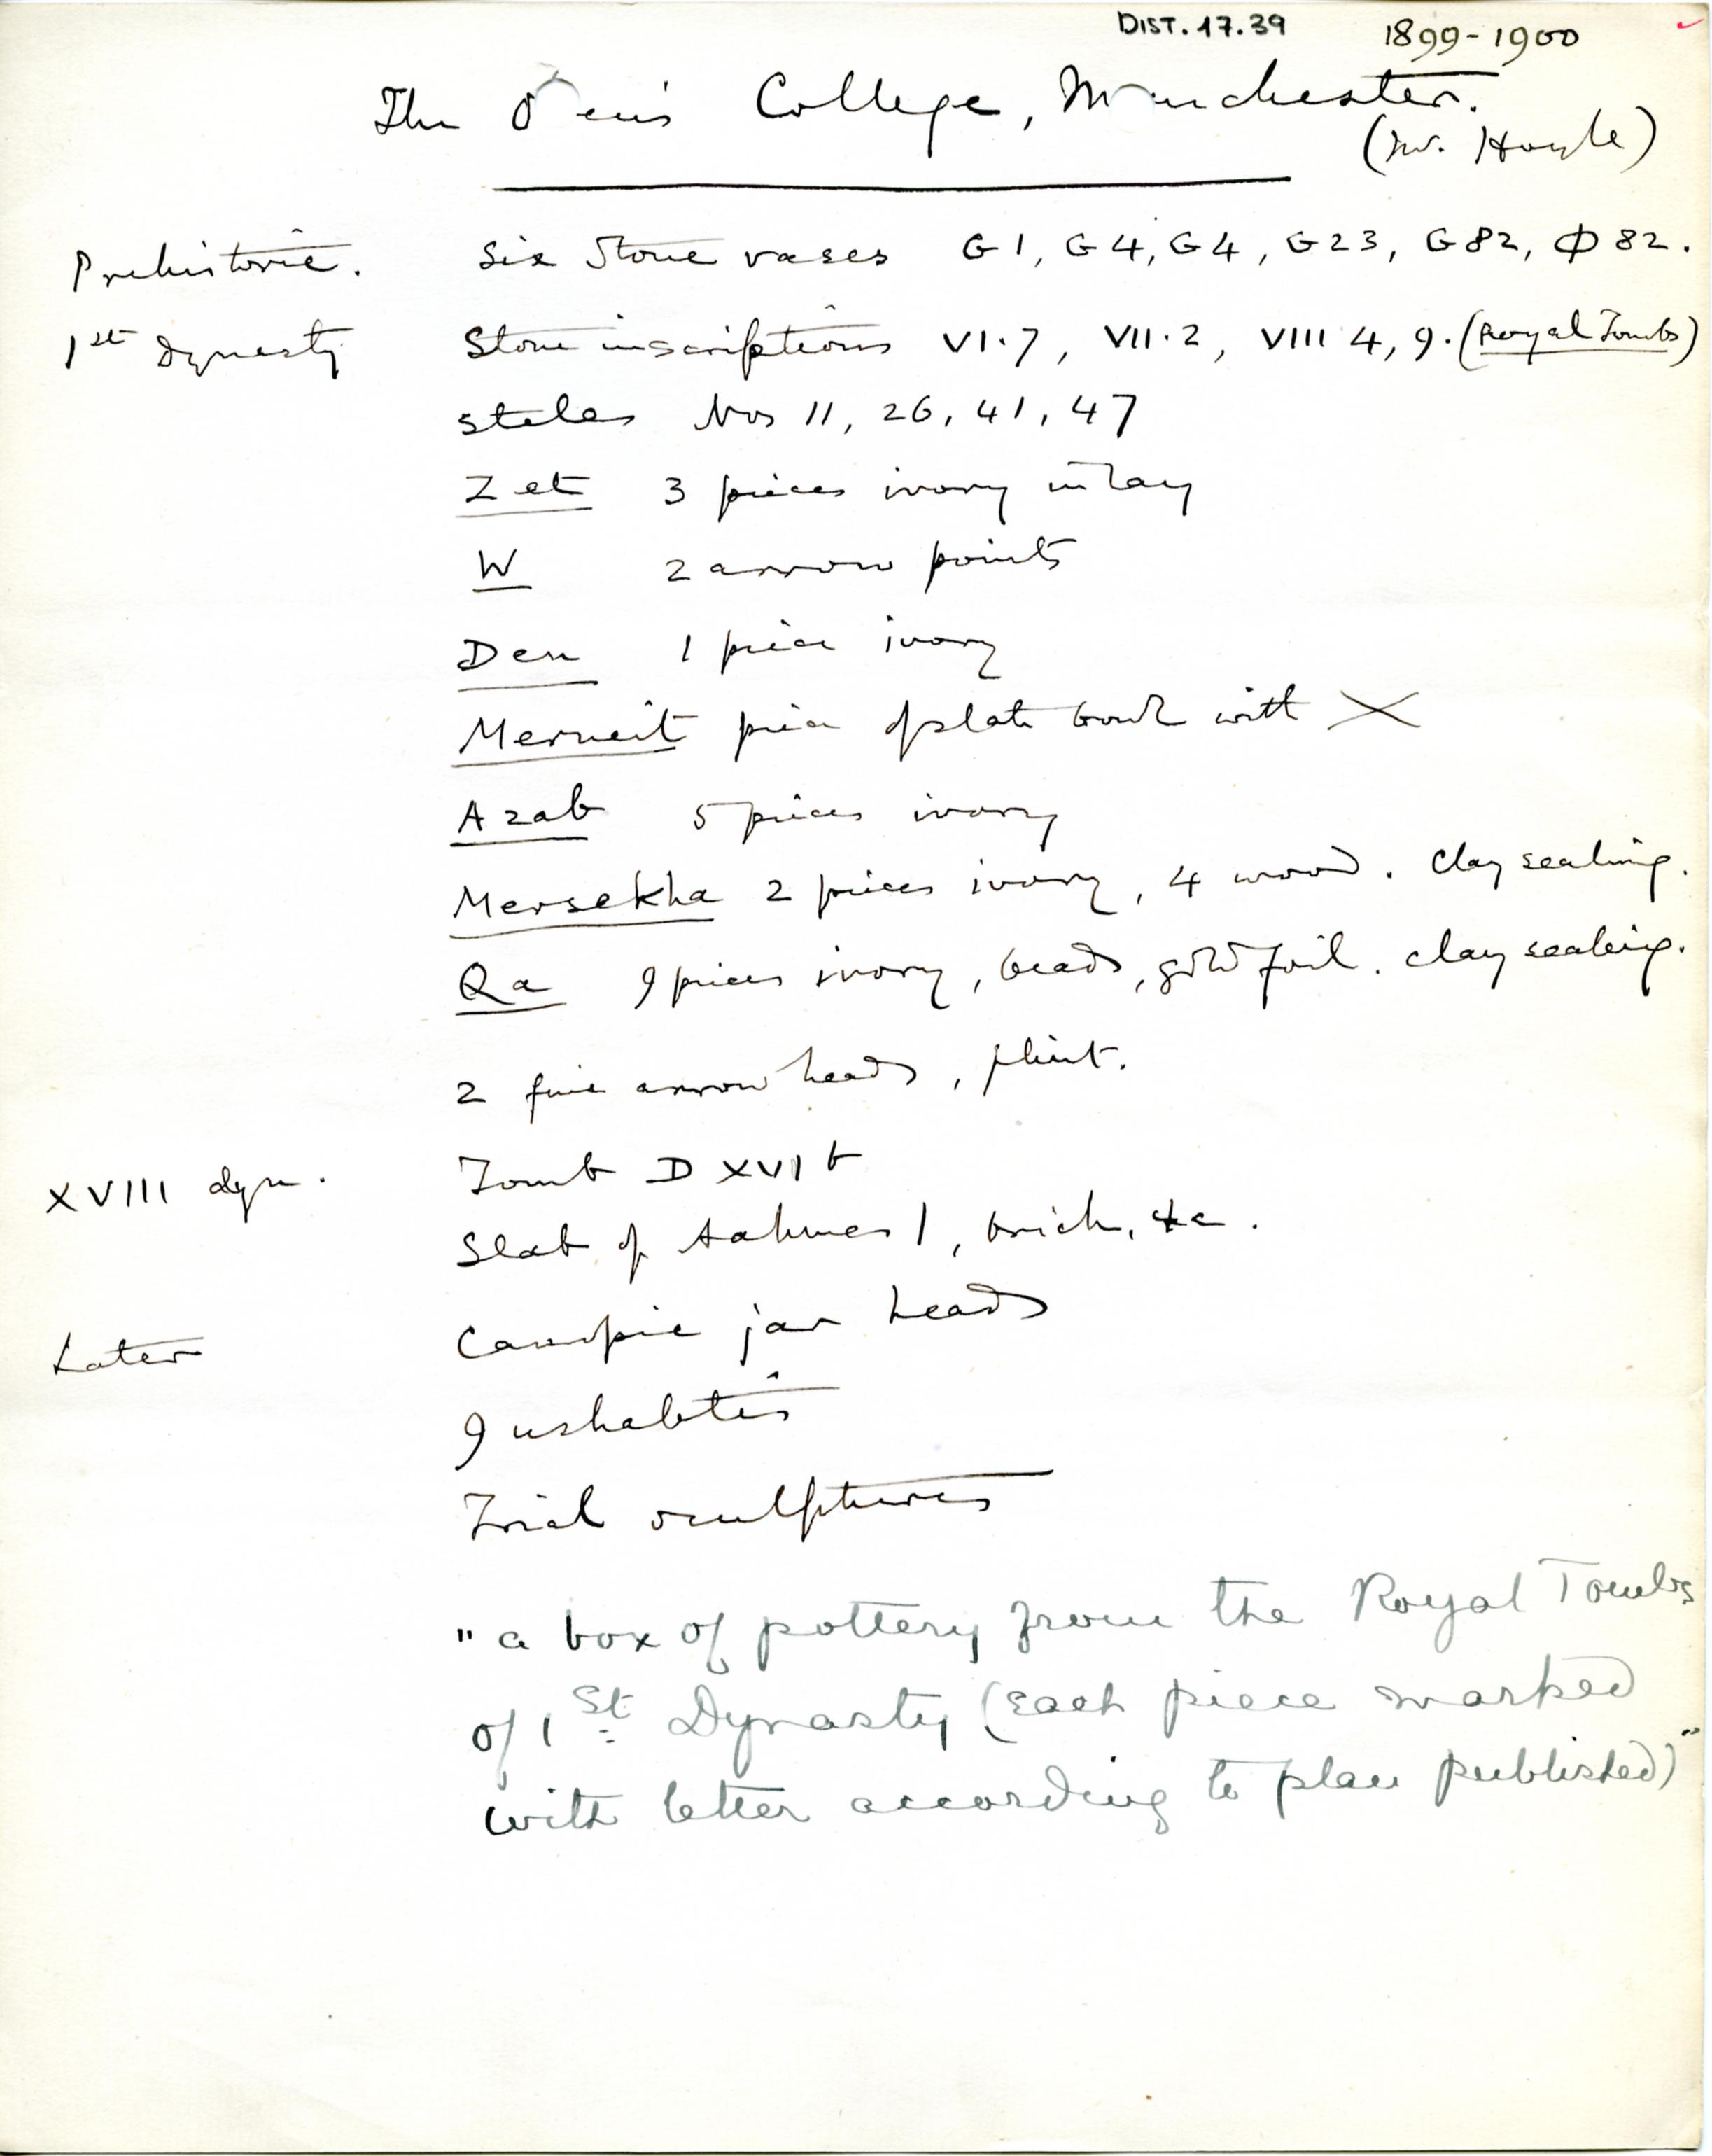 DIST. 17.39 1899-1900
The Owens College, Manchester.
(Mr. Hoyle)
Prehistoric. Six Stone vases G1, G4, G4, G23, G82, Φ82.
1st Dynasty Stone inscriptions VI.7, VII.2, VIII 4, 9. (Royal Tombs)
steles Nos 11, 26, 41, 47
Zet 3 pieces ivory inlay
W 2 arrow points
Den 1 piece ivory
Merneit piece of slate bowl with X
Azab 5 pieces ivory
Mersekha 2 pieces ivory, 4 wood. Clay sealing.
Qa 9 pieces ivory, beads, gold foil. clay sealing.
2 fine arrow heads, flint.
XVIII dyn. Tomb D XVI b
Slab of Aahmes 1, brick, &c.
Later Canopic jar heads
9 ushabtis
Trial sculptures
"a box of pottery from the Royal Tombs
of 1st Dynasty (each piece marked
with letter according to plan published)"